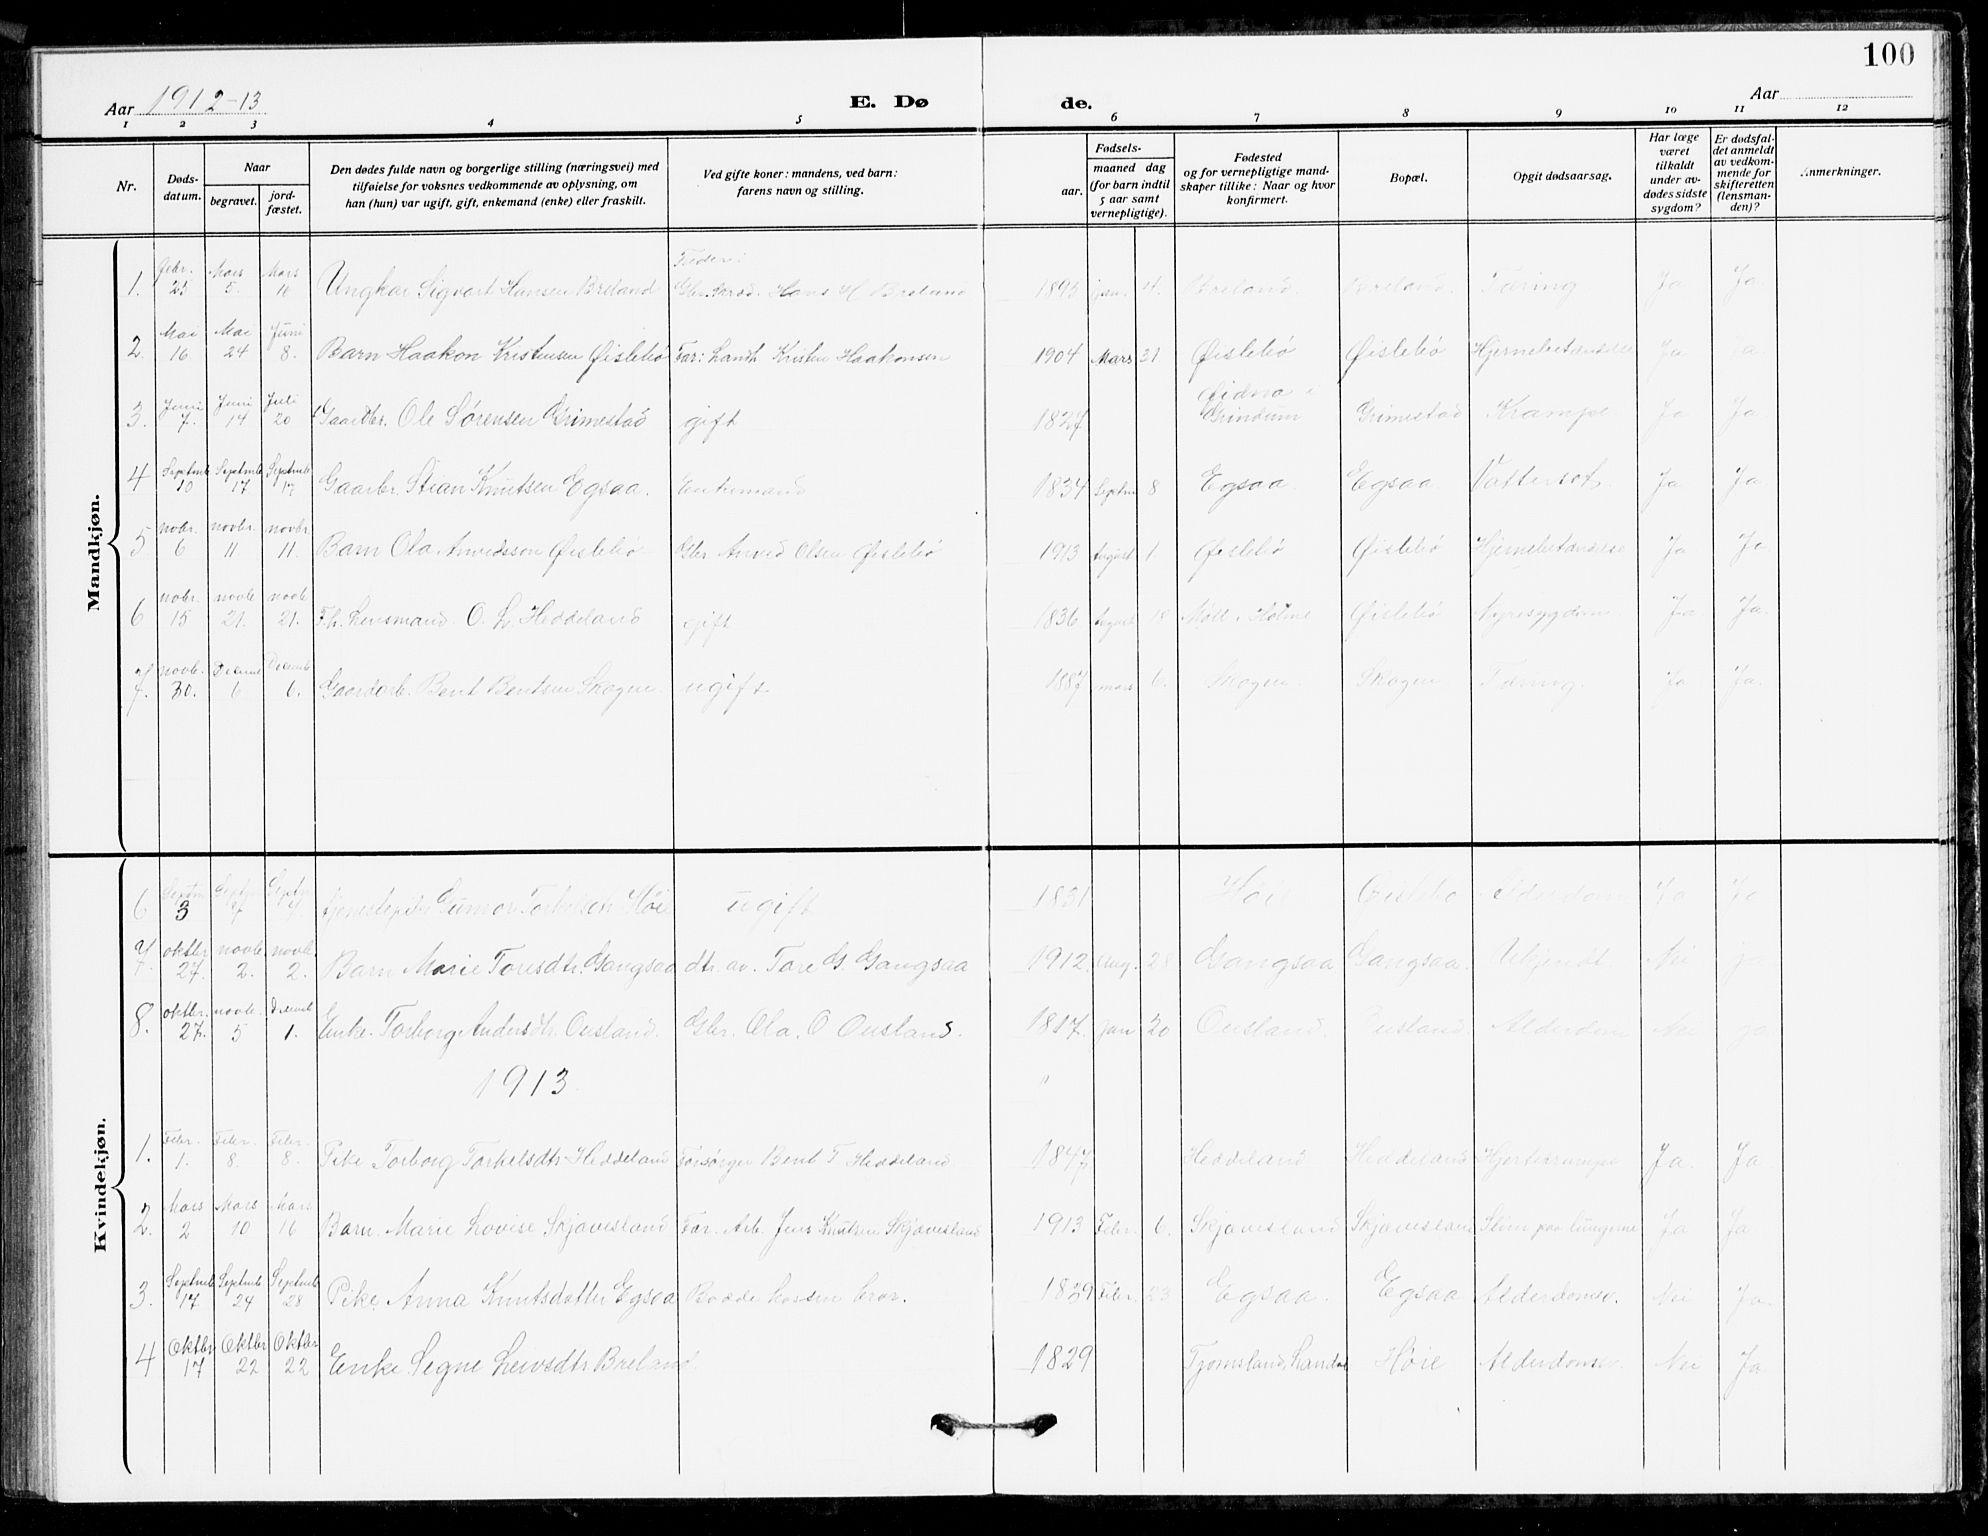 100
Aar 1912-13
E. Dø
de.
Aar
1 2 3 4 5 6 7 8 9 10 11 12
Nr.
Døds-
datum.
Naar
begravet.
jord-
fæstet.
Den dødes fulde navn og borgerlige stilling (næringsvei) med
tilføielse for voksnes vedkommende av oplysning, om
han (hun) var ugift, gift, enkemand (enke) eller fraskilt.
Ved gifte koner: mandens, ved barn:
farens navn og stilling.
Fødsels-
aar.
maaned dag
(for barn indtil
5 aar samt
vernepligtige).
Fødested
og for vernepligtige mand-
skaper tillike: Naar og hvor
konfirmert.
Bopæl.
Opgit dødsaarsag.
Har læge
været
tilkaldt
under av-
dødes sidste
sygdom?
Er dødsfal-
det anmeldt
av vedkom-
mende for
skifteretten
(lensman-
den)?
Anmerkninger.
Mandkjøn.
1. Febr. 23 Mars 5. Mars 16 Ungkar Sigvart Hansen Breland Hans H Breland 1893 jan. 4. Breland. Breland. Tæring Ja Ja.
2. Mai 16 Mai 24 Juni 8. Barn Haakon Kristensen Øislebø Far: Landh Kristen Haakonsen 1904 Mars 31 Øislebø Øislebø Hjernebetændelse Ja Ja.
3. Juni 7. Juni 14 Juli 20 Gaardbr. Ole Sørensen Grimestad gift 1827 i Grindum Grimestad Krampe Ja Ja
4 Septmb 10 Septmb 17 Septmb 17 Gaarbr. Stian Knutsen Egsaa. Enkemand 1834 Septm 8 Egsaa Egsaa Vattersot. Ja Ja.
5 nobr. 6 novbr. 11 novbr 11. Barn Ola Arvedsson Øislebø Gbr. Arved Olsen Øislebø 1913 August 1 Øislebø Øislebø Hjernebetændelse Ja Jo
6 nobr. 15 novbr 21. novbr 21. Fh. Lensmand O. L. Heddeland gift 1836 August 18 Møll i Holme Øislebø Nyresygdom Ja Ja.
7. novbr. 30. Decemb 6 Decemb 6. Gaardarb. Bent Bentsen Skogen. ugift. 1887 mars 6. Skogen. Skogen Tæring. Ja Ja.
Kvindekjøn.
6 Septm 3 Septm 7 Septm 7. tjenestepike Gunvor Torkelsen Høie ugift 1831 Høie Øislebø Alderdom Ja Ja
7. oktbr 27. novbr. 2. novbr. 2. Barn Marie Toresdtr. Gangsaa dtr. av. Tore G. Gangsaa 1912. Aug. 28 Gangsaa Gangsaa. Ukjendt Nei ja
8. oktbr. 27. novbr. 5 Decemb 1. Enke. Torborg Andersdtr. Ousland. Gbr. Ola. O Ousland. 1817. jan 20 Ousland. Ousland. Alderdom Nei ja
1913.
1. Febr. 1. Febr. 8. Febr. 8. Pike Torborg Torkelsdtr Heddeland Forsørger Bent T Heddeland 1847 Heddeland Heddeland Hjertekrampe Ja. Ja
2. Mars 2 Mars 10 Mars 16 Barn. Marie Lovise Skjævesland Far. Arb. Jens Knutsen Skjævesland 1913 Febr. 6. Skjævesland Skjævesland Slim paa lungerne Ja Ja
3. Septmb 17 Septmb 24 Septmb 28 Pike. Anna Knutsdatter Egsaa Bodde hossen bror. 1829 Febr. 23 Egsaa. Egsaa Alderdomsv. Nei Ja.
4 Oktbr 17 Oktbr 22 Oktbr 22 Enke. Segne Leivsdtr Breland. 1829 Tjomsland, Landal Høie Alderdomsv. Nei Ja